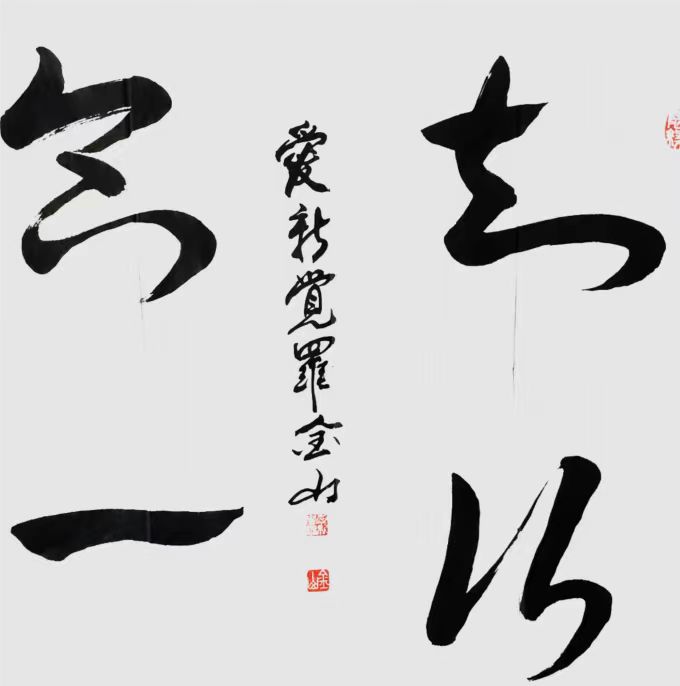 知行
合一
愛新覺羅金